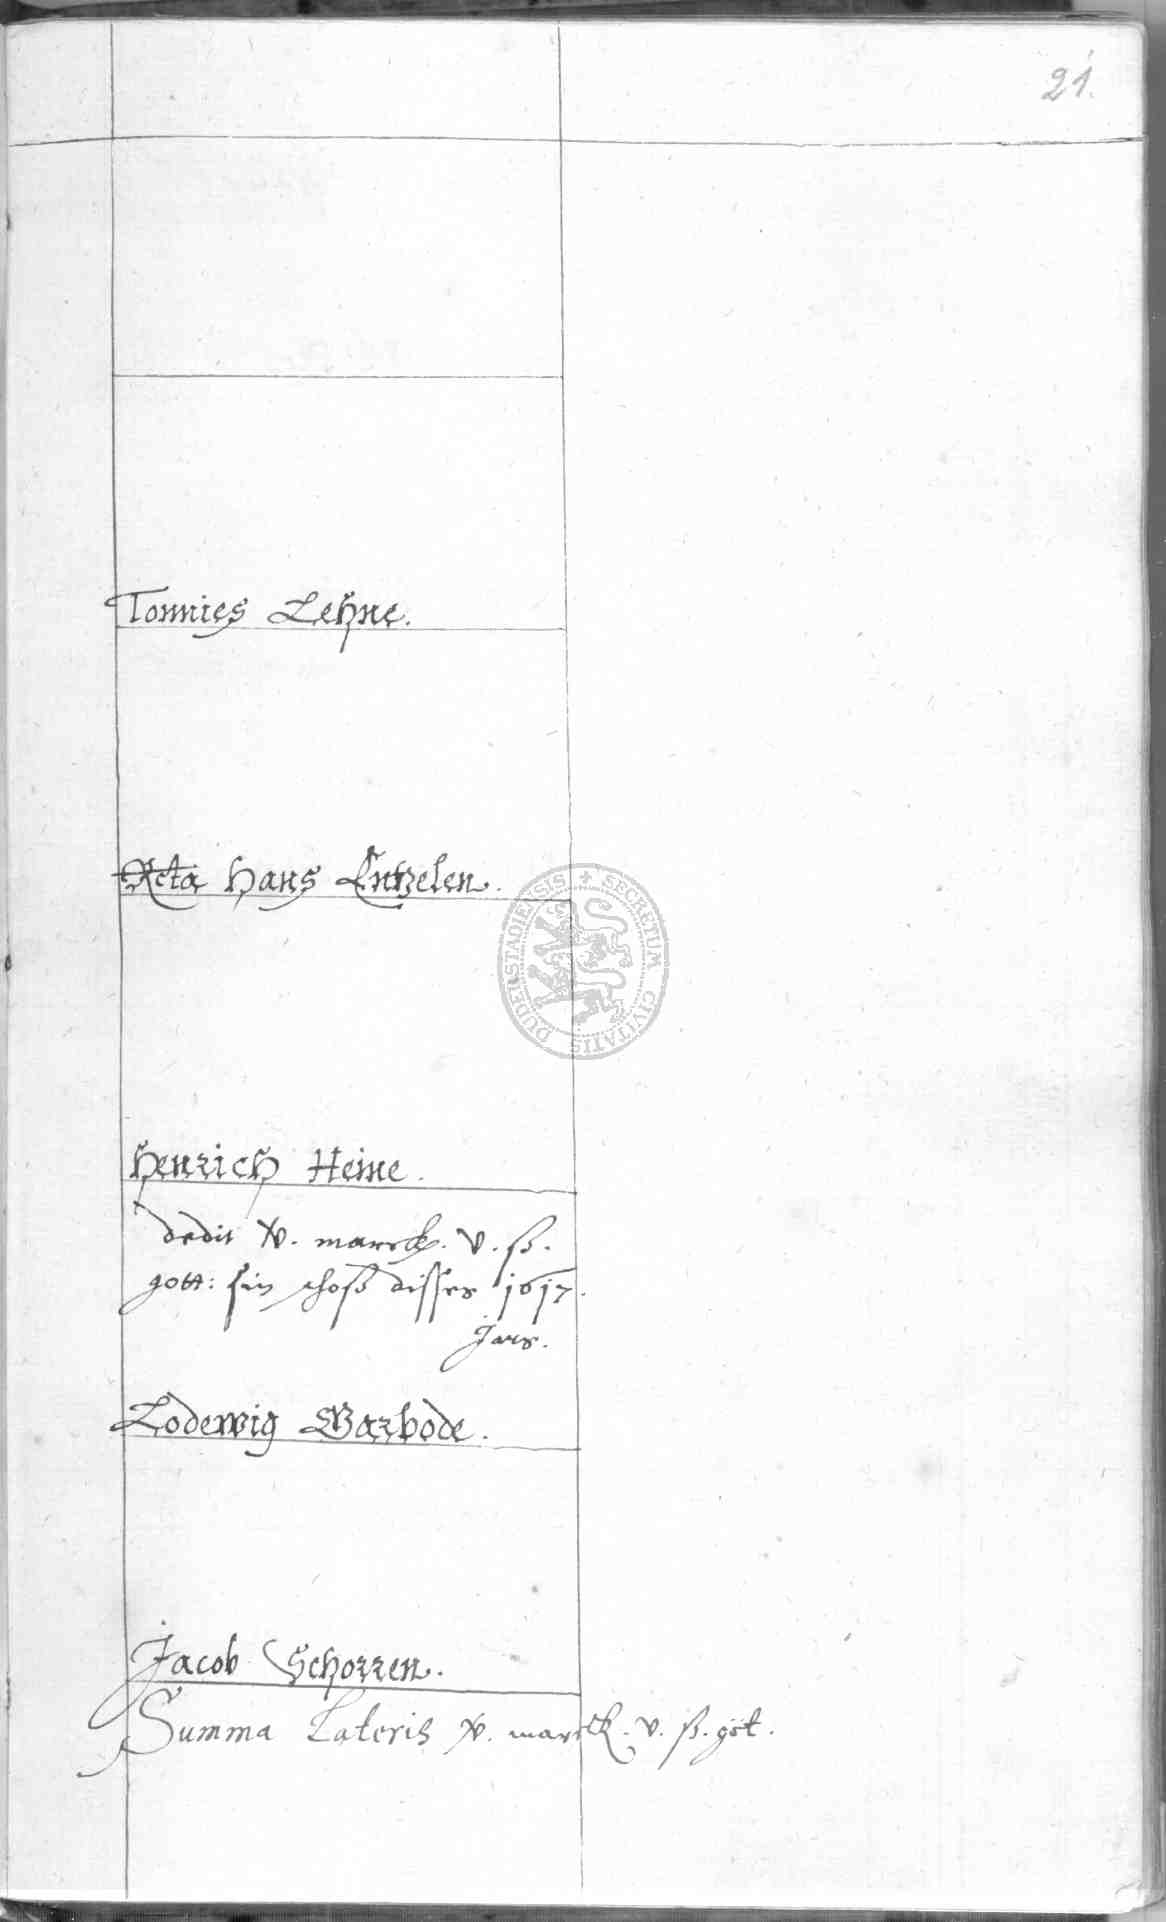 21.
Tonnies Lehne.
Hans Entzelen.
Henrich Heine.
dedit xv. marck. v. ß.
gott: sin schoß disses 1617.
Jars.
Lodewig Warbode.
Jacob Schorren.
Summa Lateris xv. marck. v. ß. got.
SECRETUM CIVITATIS DUDERSTADIENSIS